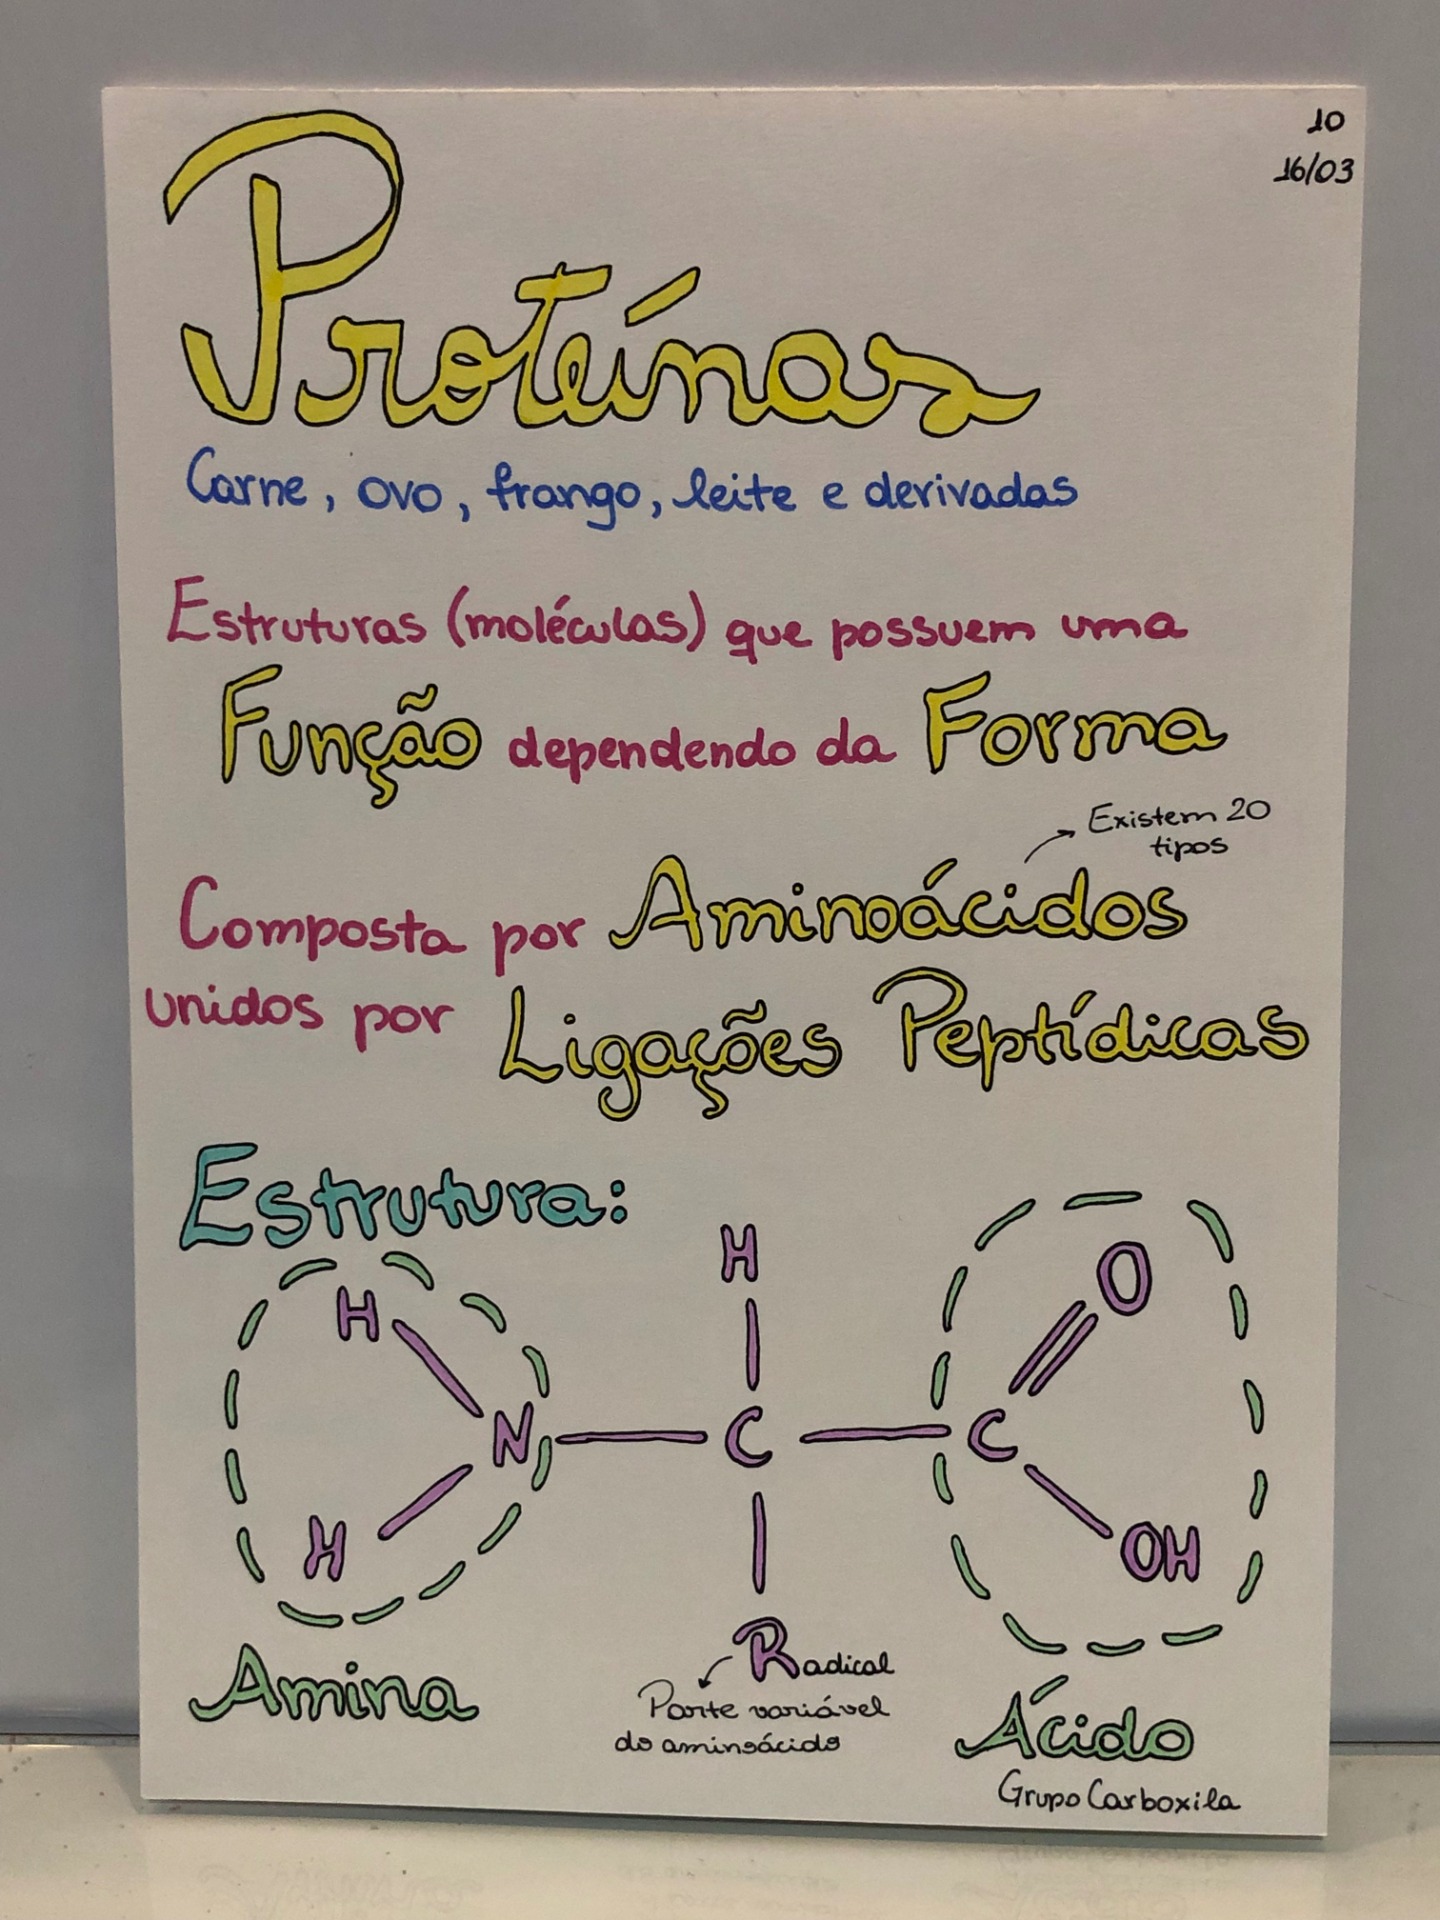 10
16/03
Proteínas
Carne, ovo, frango, leite e derivadas
Estruturas (moléculas) que possuem uma
Função dependendo da Forma
Existem 20
tipos
Composta por Aminoácidos
unidos por Ligações Peptídicas
Estrutura:
H
H
O
H
N C C
H
OH
Radical
Amina
Parte variável
do aminoácido
Ácido
Grupo Carboxila